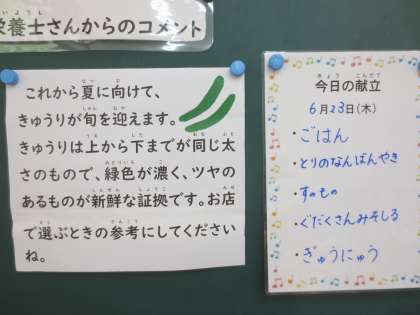 栄養士さんからのコメント
これから夏に向けて、
きゅうりが旬を迎えます。
きゅうりは上から下までが同じ太
さのもので、緑色が濃く、ツヤの
あるものが新鮮な証拠です。お店
で選ぶときの参考にしてください
ね。
今日の献立
6月23日(木)
・ごはん
・とりのなんばんやき
・すのもの
・ぐだくさんみそしる
・ぎゅうにゅう